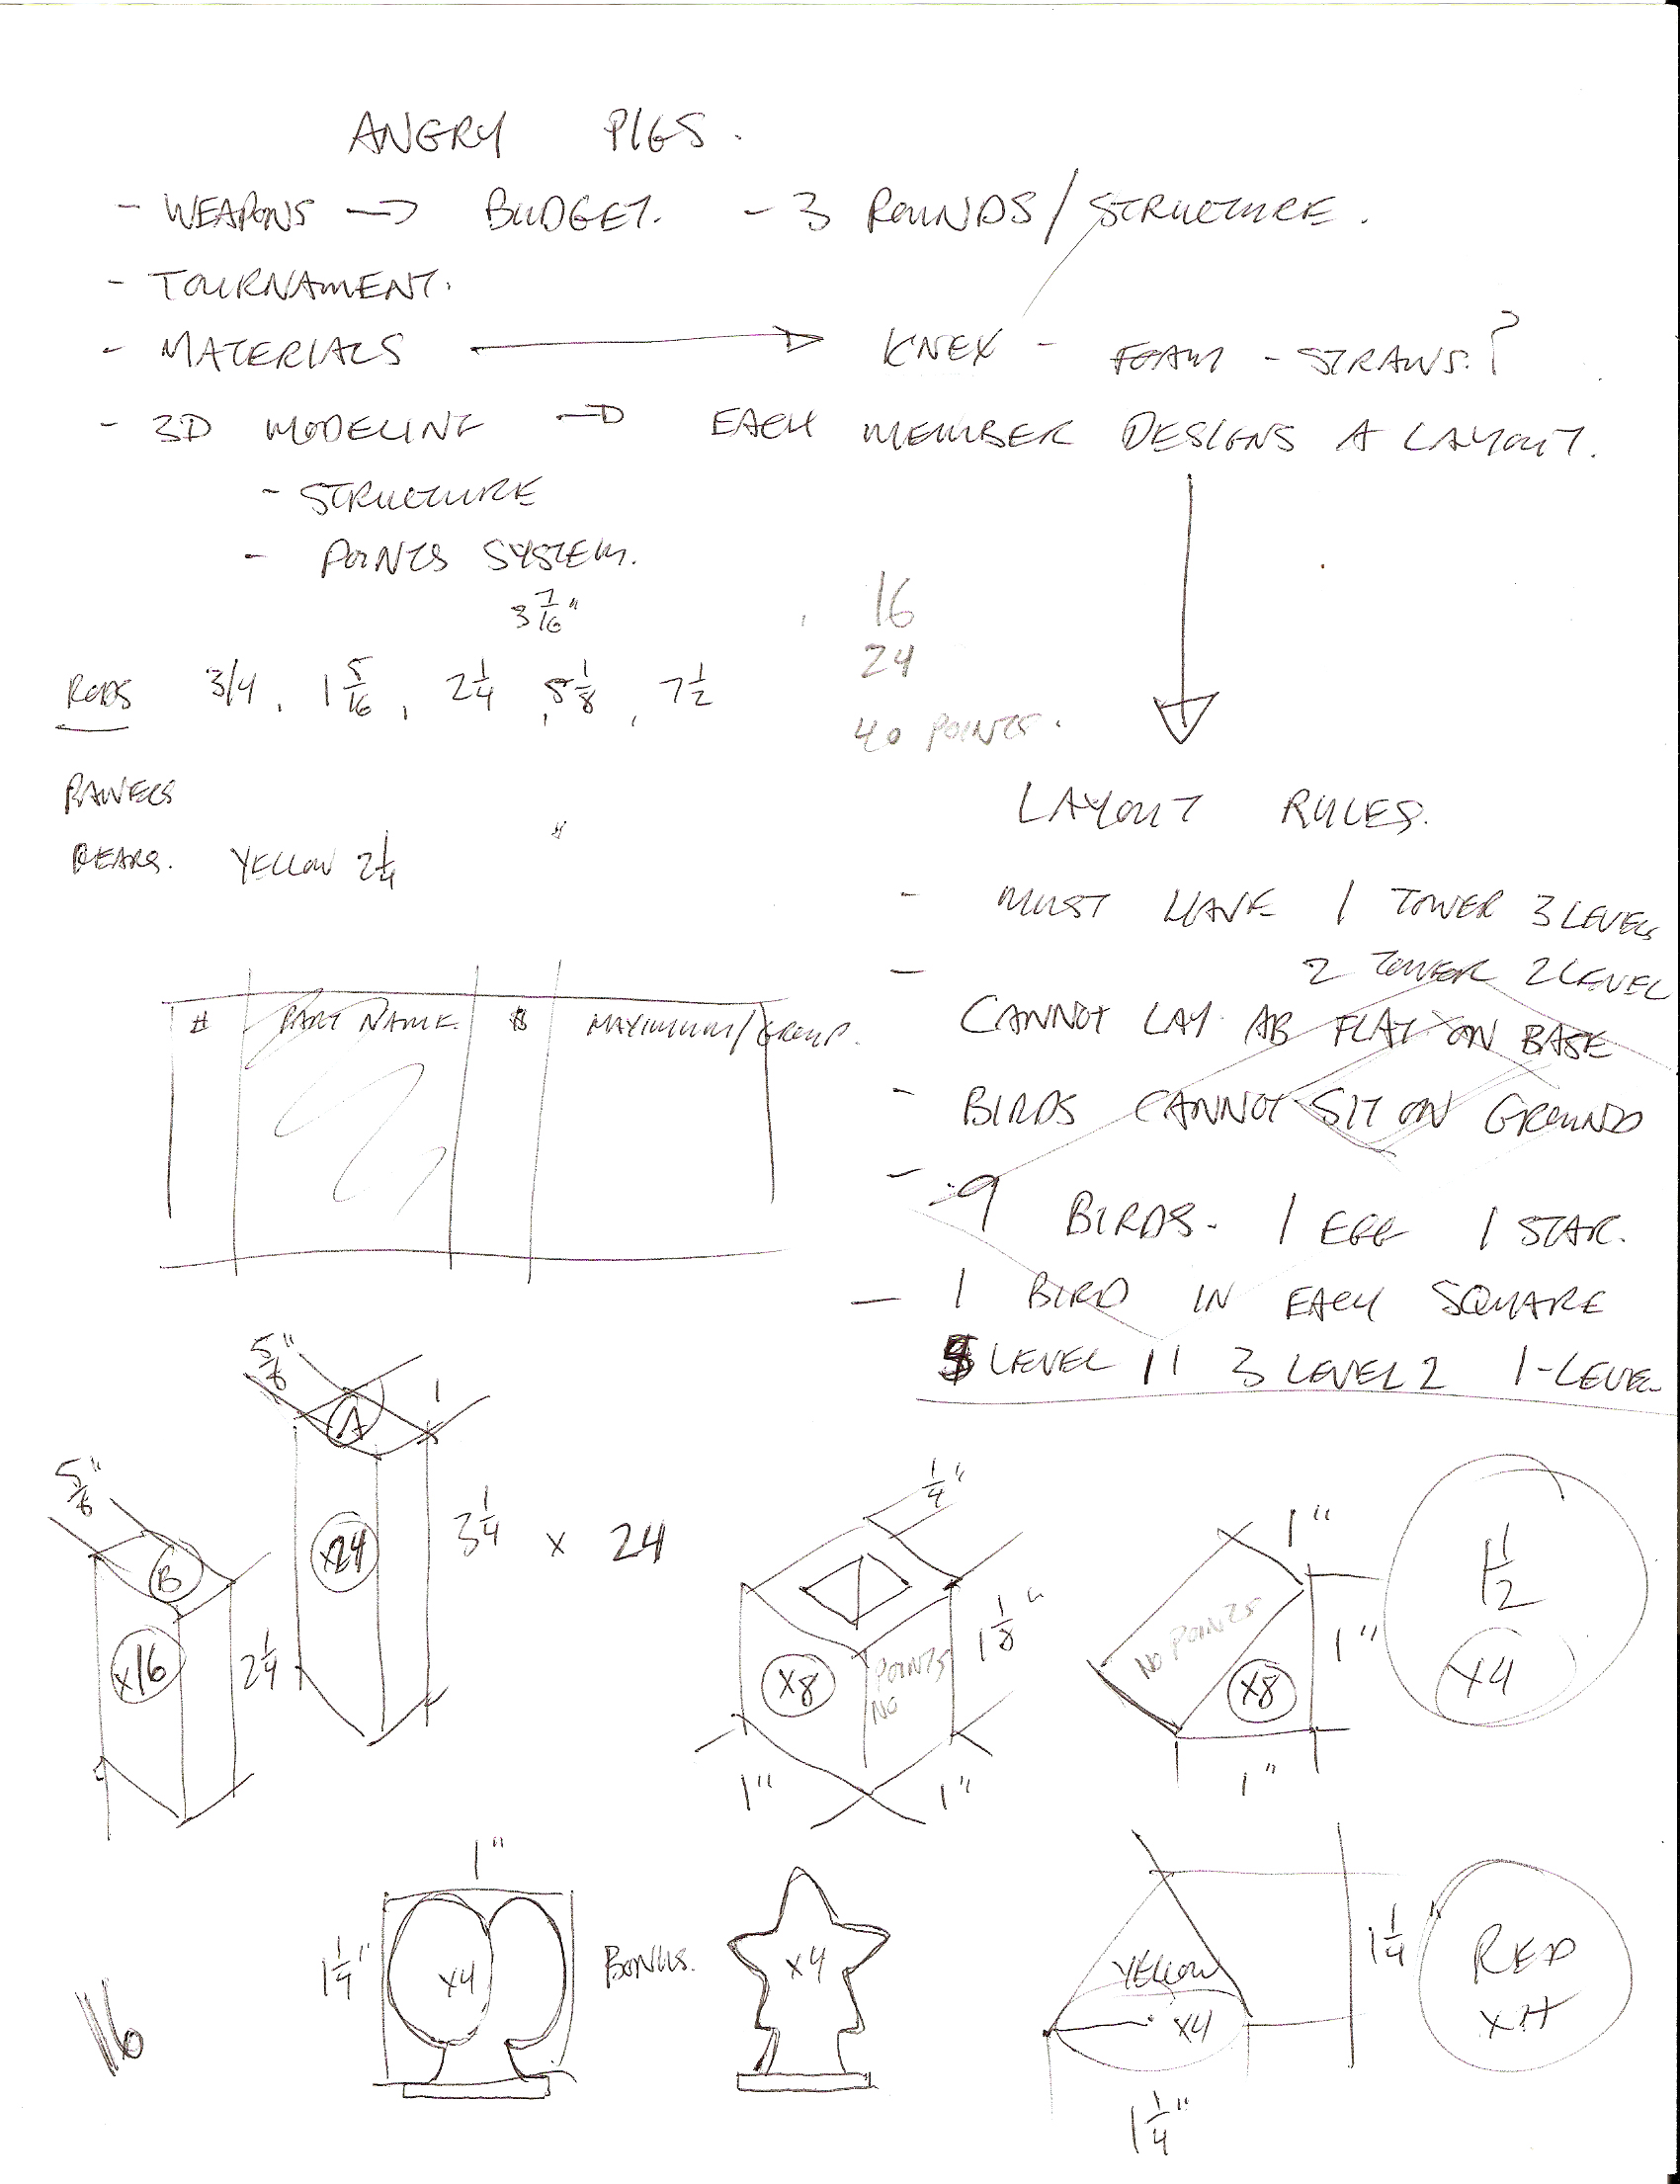 ANGRY PIGS.
- WEAPONS → BUDGET. - 3 ROUNDS/STRUCTURE.
- TOURNAMENT.
- MATERIALS → KNEX - FOAM - STRAWS.?
- 3D MODELING → EACH MEMBER DESIGNS A LAYOUT.
- STRUCTURE
- POINTS SYSTEM.
3 7/16"
16
24
40 POINTS.
RODS 3/4, 1 5/16, 2 1/4, 5 1/8, 7 1/2
PANELS
YELLOW 2 1/4 "
LAYOUT RULES.
- MUST HAVE 1 TOWER 3 LEVELS
- 2 TOWER 2 LEVEL
CANNOT LAY AB FLAT ON BASE
- BIRDS CANNOT SIT ON GROUND
- 9 BIRDS. 1 EGG 1 STAR.
- 1 BIRD IN EACH SQUARE
5 LEVEL 1 3 LEVEL 2 1-LEVEL
# PART NAME $ MAXIMUM/GROUP.
5/8" A 1
x24 3 1/4 x 24
5/8" B
x16 2 1/4
1/4"
x8 POINTS NO 1 1/8"
1" 1"
1"
NO POINTS x8 1"
1"
1 1/2
x4
1"
1 1/4" x4 BONUS.
x4
YELLOW
x4 1 1/4"
1 1/4"
RED
x4
16